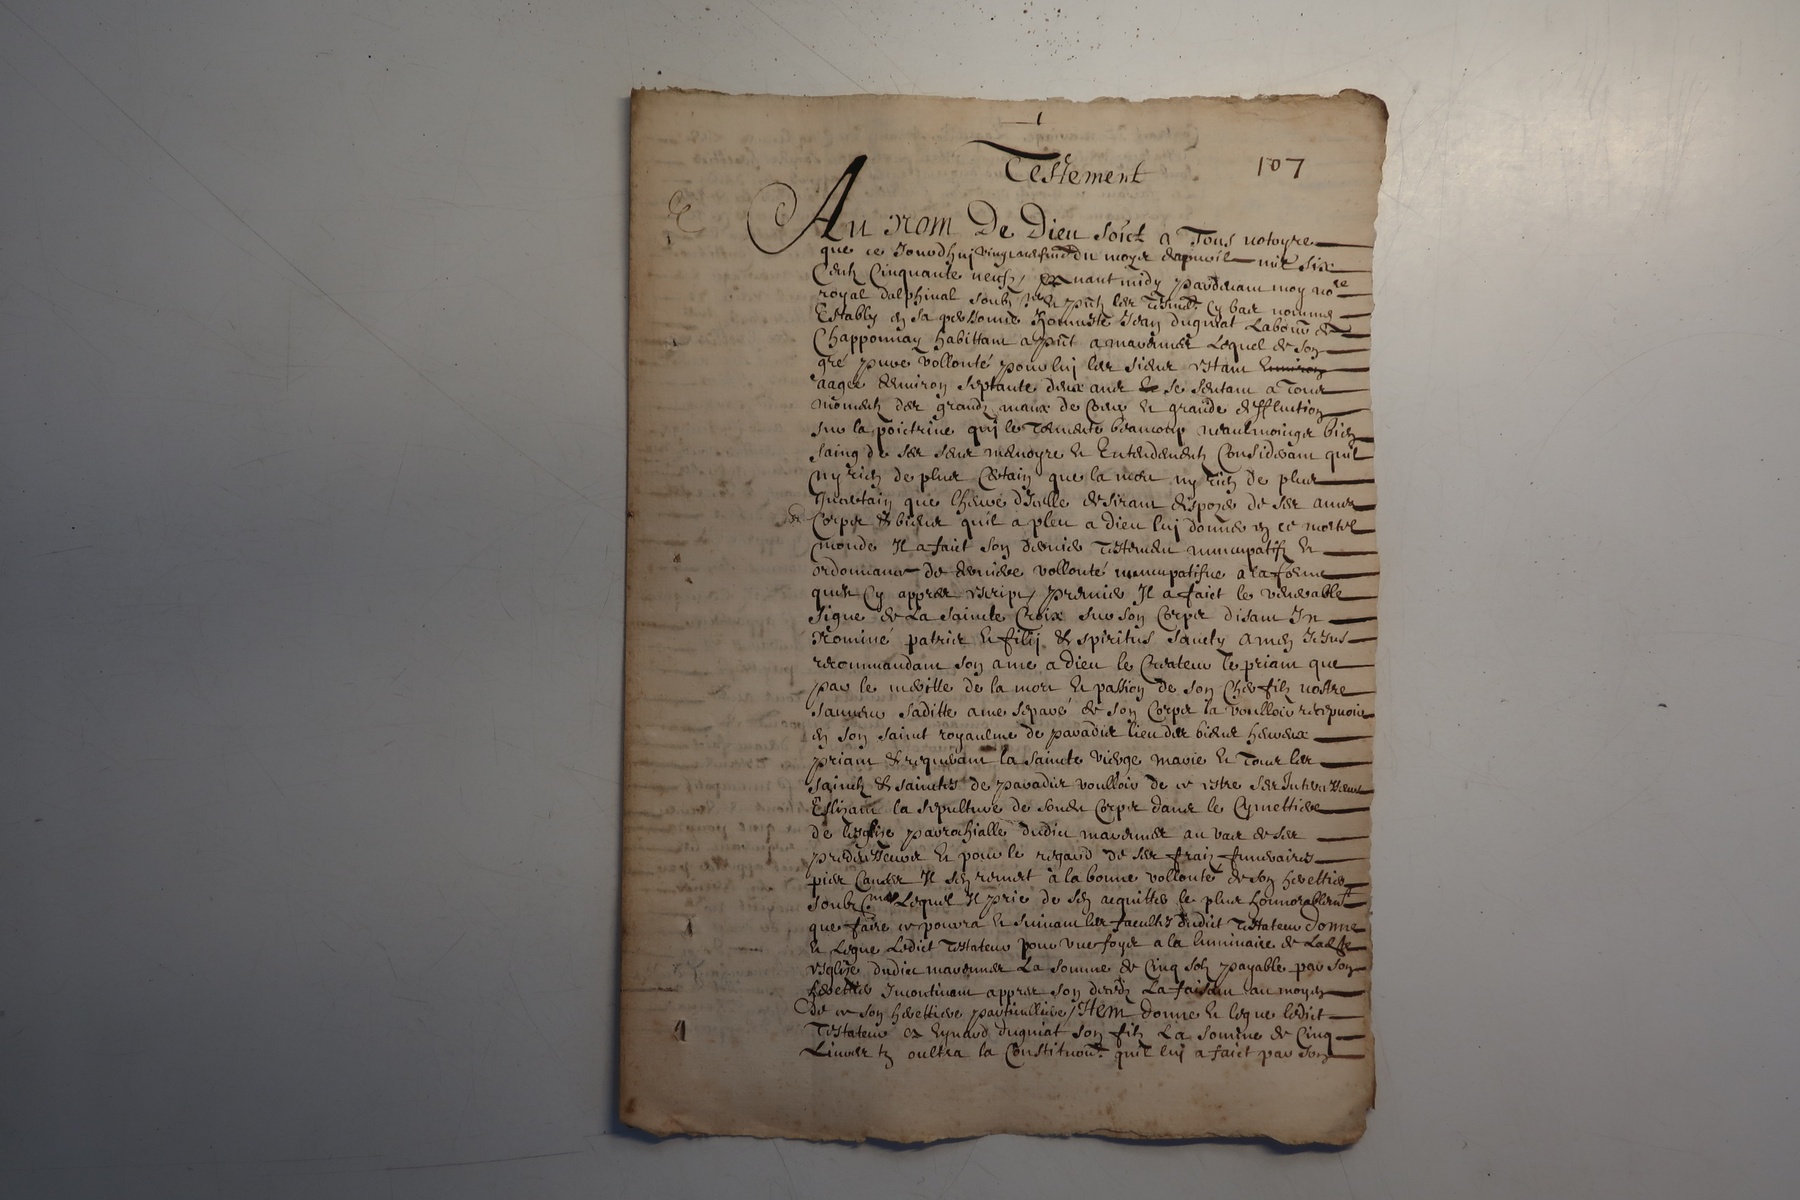 Testement
107
Au nom De Dieu soict a Tous notoyre
que ce Jourdhuj vingtneufiesme du moys dapvril mil six
Centz Cinquante neufz, avant midy pardevant moy no.re
royal dalphinal soubz.né & pntz les tesmoings Cy bas nommes
Estably en sa personne honneste Jean duguiat Laboureur de
Chapponnay habittant a pnt a marennes Lequel de son
gré pure vollonté pour luj les sieurs estant
aagee denviron septante deux ans se sentant a Tous
momentz des grandz maux de Coeur et grande deffluction
sur la poictrine quj le Tormente beaucoup neaulmoinge bien
saing de ses sens memoyre et Entendementz Considerant quil
ny rien de plus Certain que la mort ny rien de plus
Incertain que lheure dicelle desirant dispozer de ses ames
Corps & biens quil a pleu a Dieu luj donner en ce mortel
monde Il a faict son dernier testement nuncupatifz et
ordonnance de derniere vollonté nuncupatifve a la forme
quest Cy appres escript, premier Il a faict le venerable
signe de La saincte Croix sur son Corps disant In
Nomine patris et filij & spiritus sancty amen Jesus
recommandant son ame a Dieu le Createur le priant que
par le meritte de la mort et passion de son Cher filz nostre
sauveur saditte ame separé de son Corps la voulloir recepvoir
en son sainct royaulme de paradis lieu des biens heureux
priant & requerant la saincte vierge marie et Tous les
sainctz & sainctes de paradis voulloir de ce estre ses Intercesseurs
Eslizant la sepulture de sondit Corps dans le Cymettiere
de leglise parrochialle dudict marennes au vas de ses
predecesseurs et pour le regard de ses fraiz funeraires
pies Causes Il sen remet à la bonne vollonté de son herettier
soubz Lequel Il prie de sen acquitter le plus honnorablement
que faire ce pourra et suivant les facultes dudict Testateur donne
et Legue Ledict Testateur pour une foys a la luminaire de Laditte
Esglise dudict marennes La somme de Cinq solz payable par son
herettier Incontinant appres son decedz La faisant au moyen
de ce son herettiere particulliere, Item donne et legue ledict
Testateur ez Eynard duguiat son filz La somme de Cinq
Livres tz oultra la Constitution quil luj a faict par son